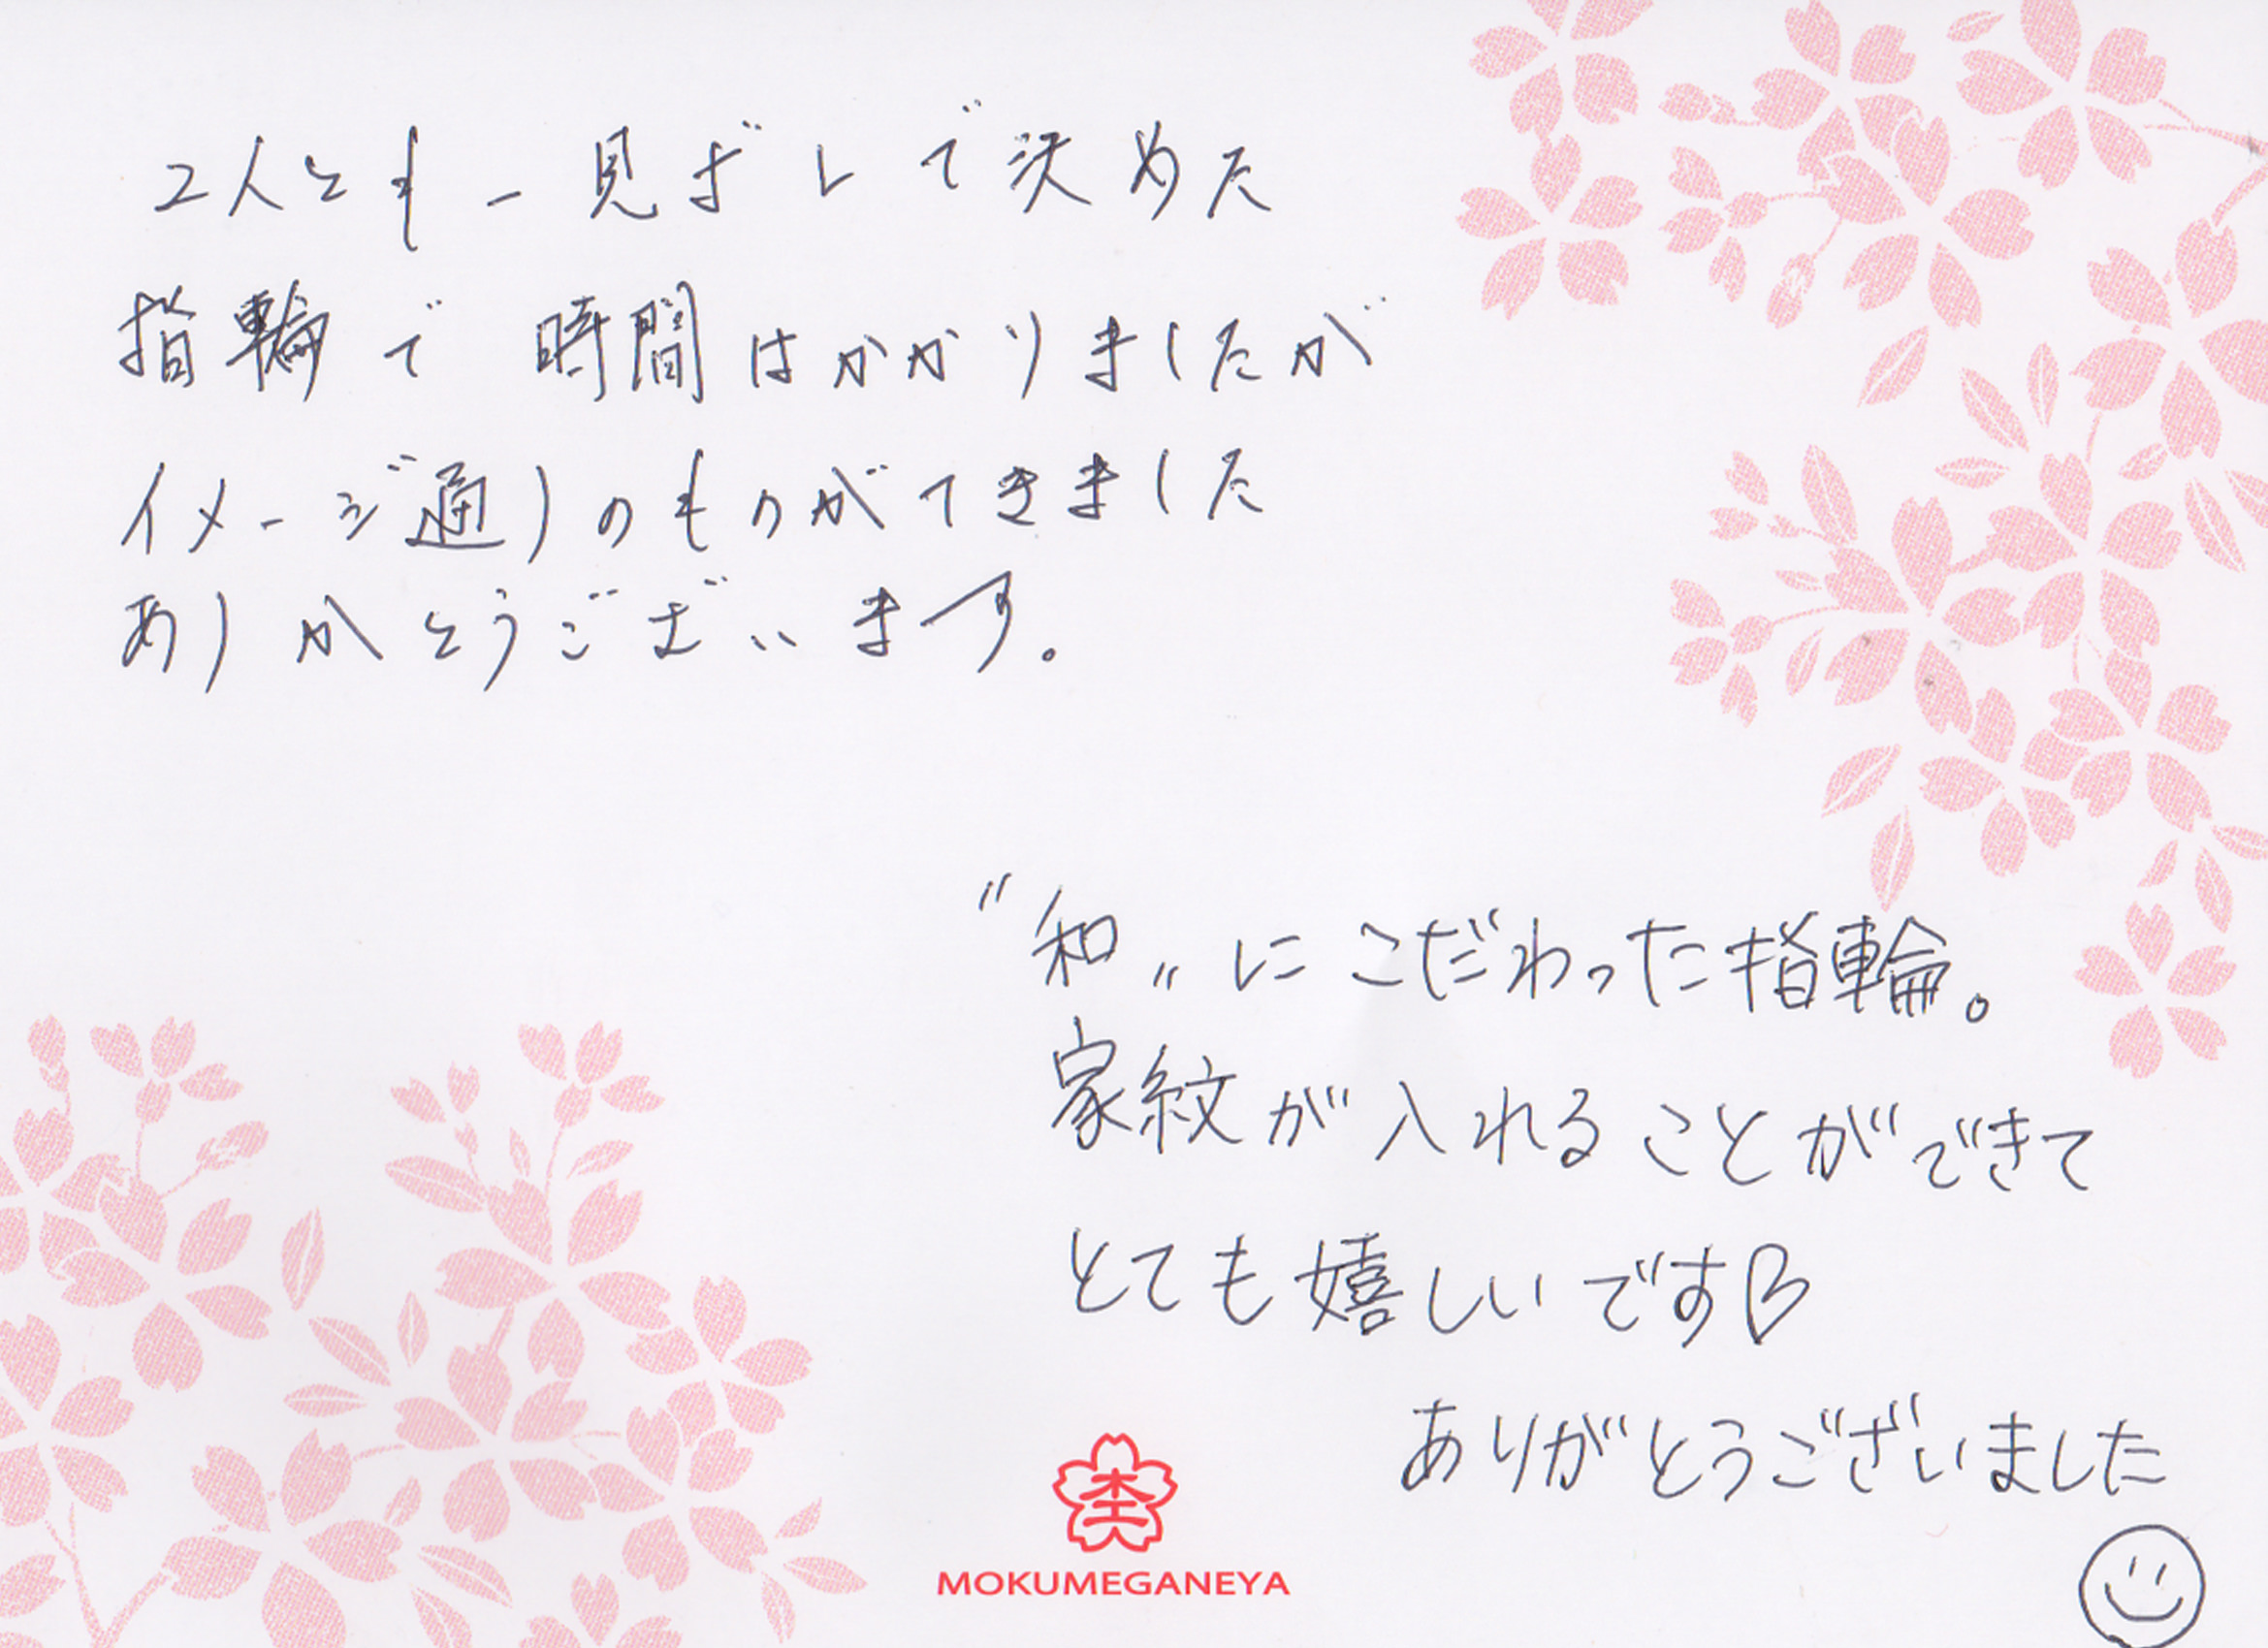 2人とも一見ぼれで決めた
指輪で 時間はかかりましたが
イメージ通りのものができました
ありがとうございます。
"和"にこだわった指輪。
家紋が入れることができて
とても嬉しいです♡
ありがとうございました
杢
MOKUMEGANEYA